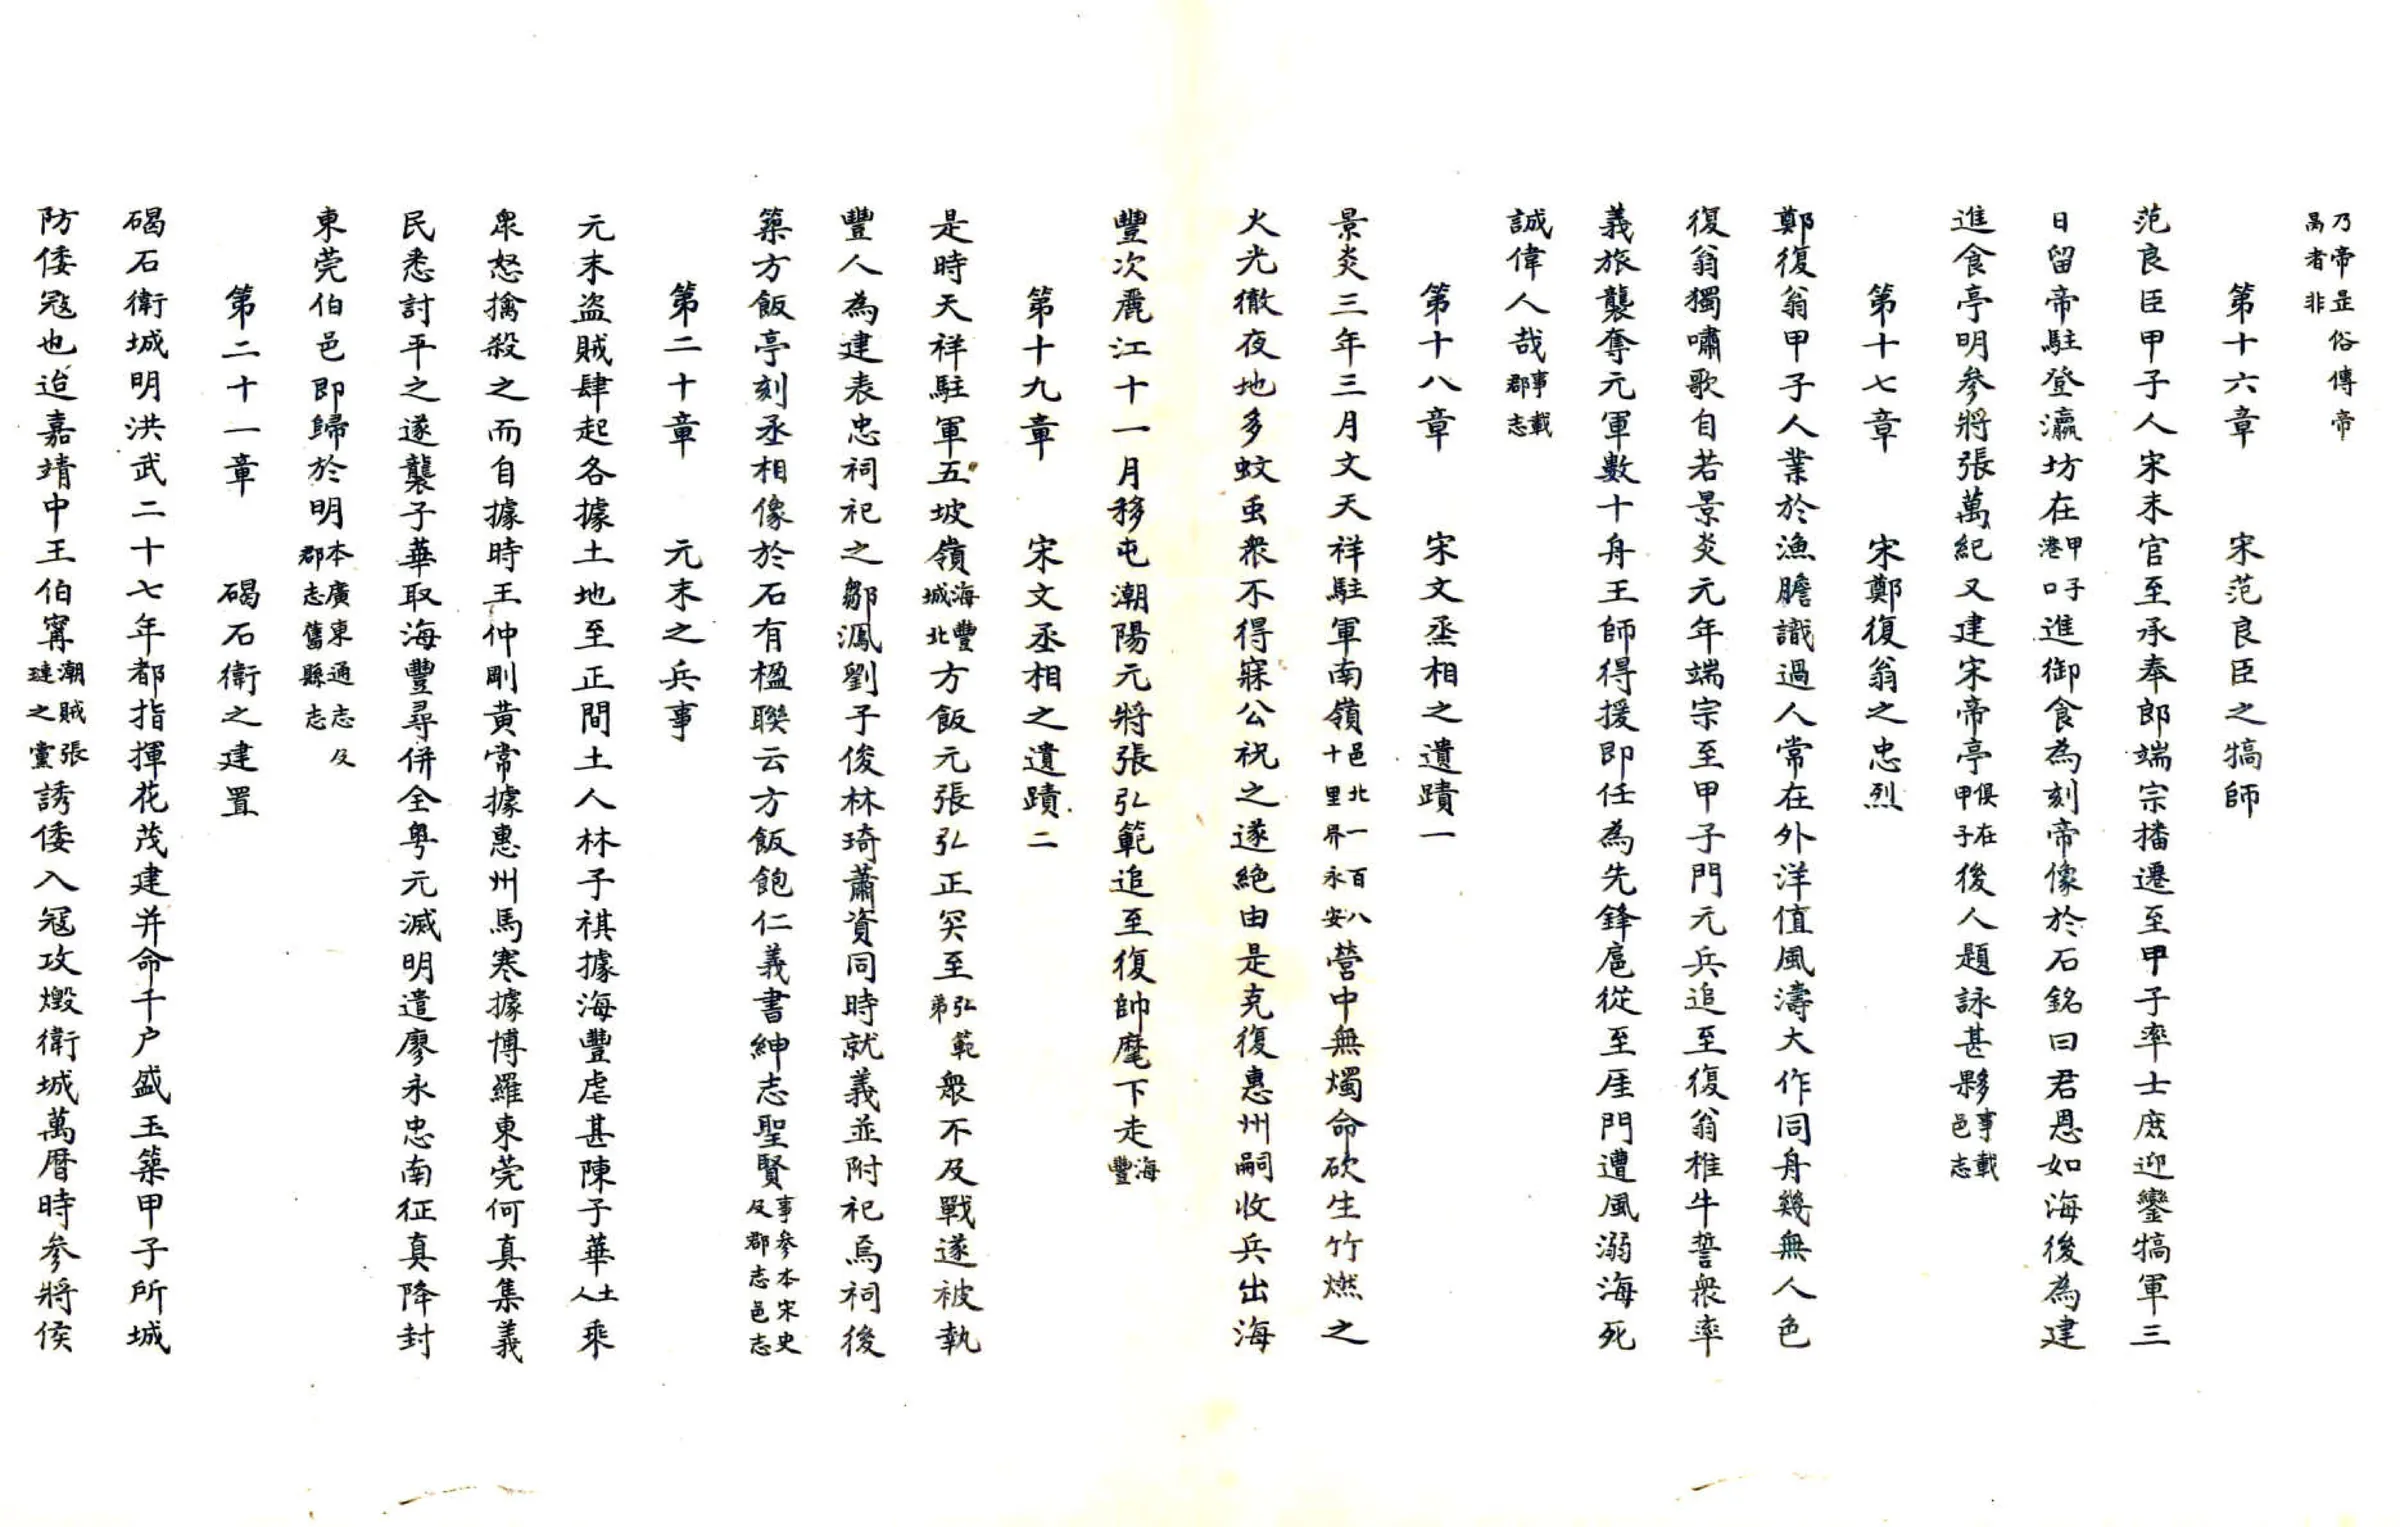 乃帝昰俗傳帝
昺者非
第十六章　宋范良臣之犒師
范良臣甲子人宋末官至承奉郎端宗播遷至甲子率士庶迎鑾犒軍三
日留帝駐登瀛坊在甲子港口進御食為刻帝像於石銘曰君恩如海後為建
進食亭明參將張萬紀又建宋帝亭俱在甲子後人題詠甚夥事載邑志
第十七章　宋鄭復翁之忠烈
鄭復翁甲子人業於漁膽識過人常在外洋值風濤大作同舟幾無人色
復翁獨嘯歌自若景炎元年端宗至甲子門元兵追至復翁椎牛誓眾率
義旅襲奪元軍數十舟王師得援即任為先鋒扈從至厓門遭風溺海死
誠偉人哉事載郡志
第十八章　宋文丞相之遺蹟一
景炎三年三月文天祥駐軍南嶺邑北一百八十里界永安營中無燭命砍生竹燃之
火光徹夜地多蚊虫衆不得寐公祝之遂絕由是克復惠州嗣收兵出海
豐次麗江十一月移屯潮陽元將張弘範追至復帥麾下走海豐
第十九章　宋文丞相之遺蹟二
是時天祥駐軍五坡嶺海豐城北方飯元張弘正突至弘範弟衆不及戰遂被執
豐人為建表忠祠祀之鄒㵯劉子俊林琦蕭資同時就義並附祀焉祠後
築方飯亭刻丞相像於石有楹聯云方飯飽仁義書紳志聖賢事參本宋史及郡志邑志
第二十章　元末之兵事
元末盜賊肆起各據土地至正間土人林子祺據海豐虐甚陳子華土人乘
衆怒擒殺之而自據時王仲剛黃常據惠州馬寒據博羅東莞何真集義
民悉討平之遂襲子華取海豐尋併全粵元滅明遣廖永忠南征真降封
東莞伯邑即歸於明本廣東通志及郡志舊縣志
第二十一章　碣石衛之建置
碣石衛城明洪武二十七年都指揮花茂建并命千户盛玉築甲子所城
防倭寇也迨嘉靖中王伯寗潮賊張璉之黨誘倭入寇攻燬衛城萬曆時參將侯